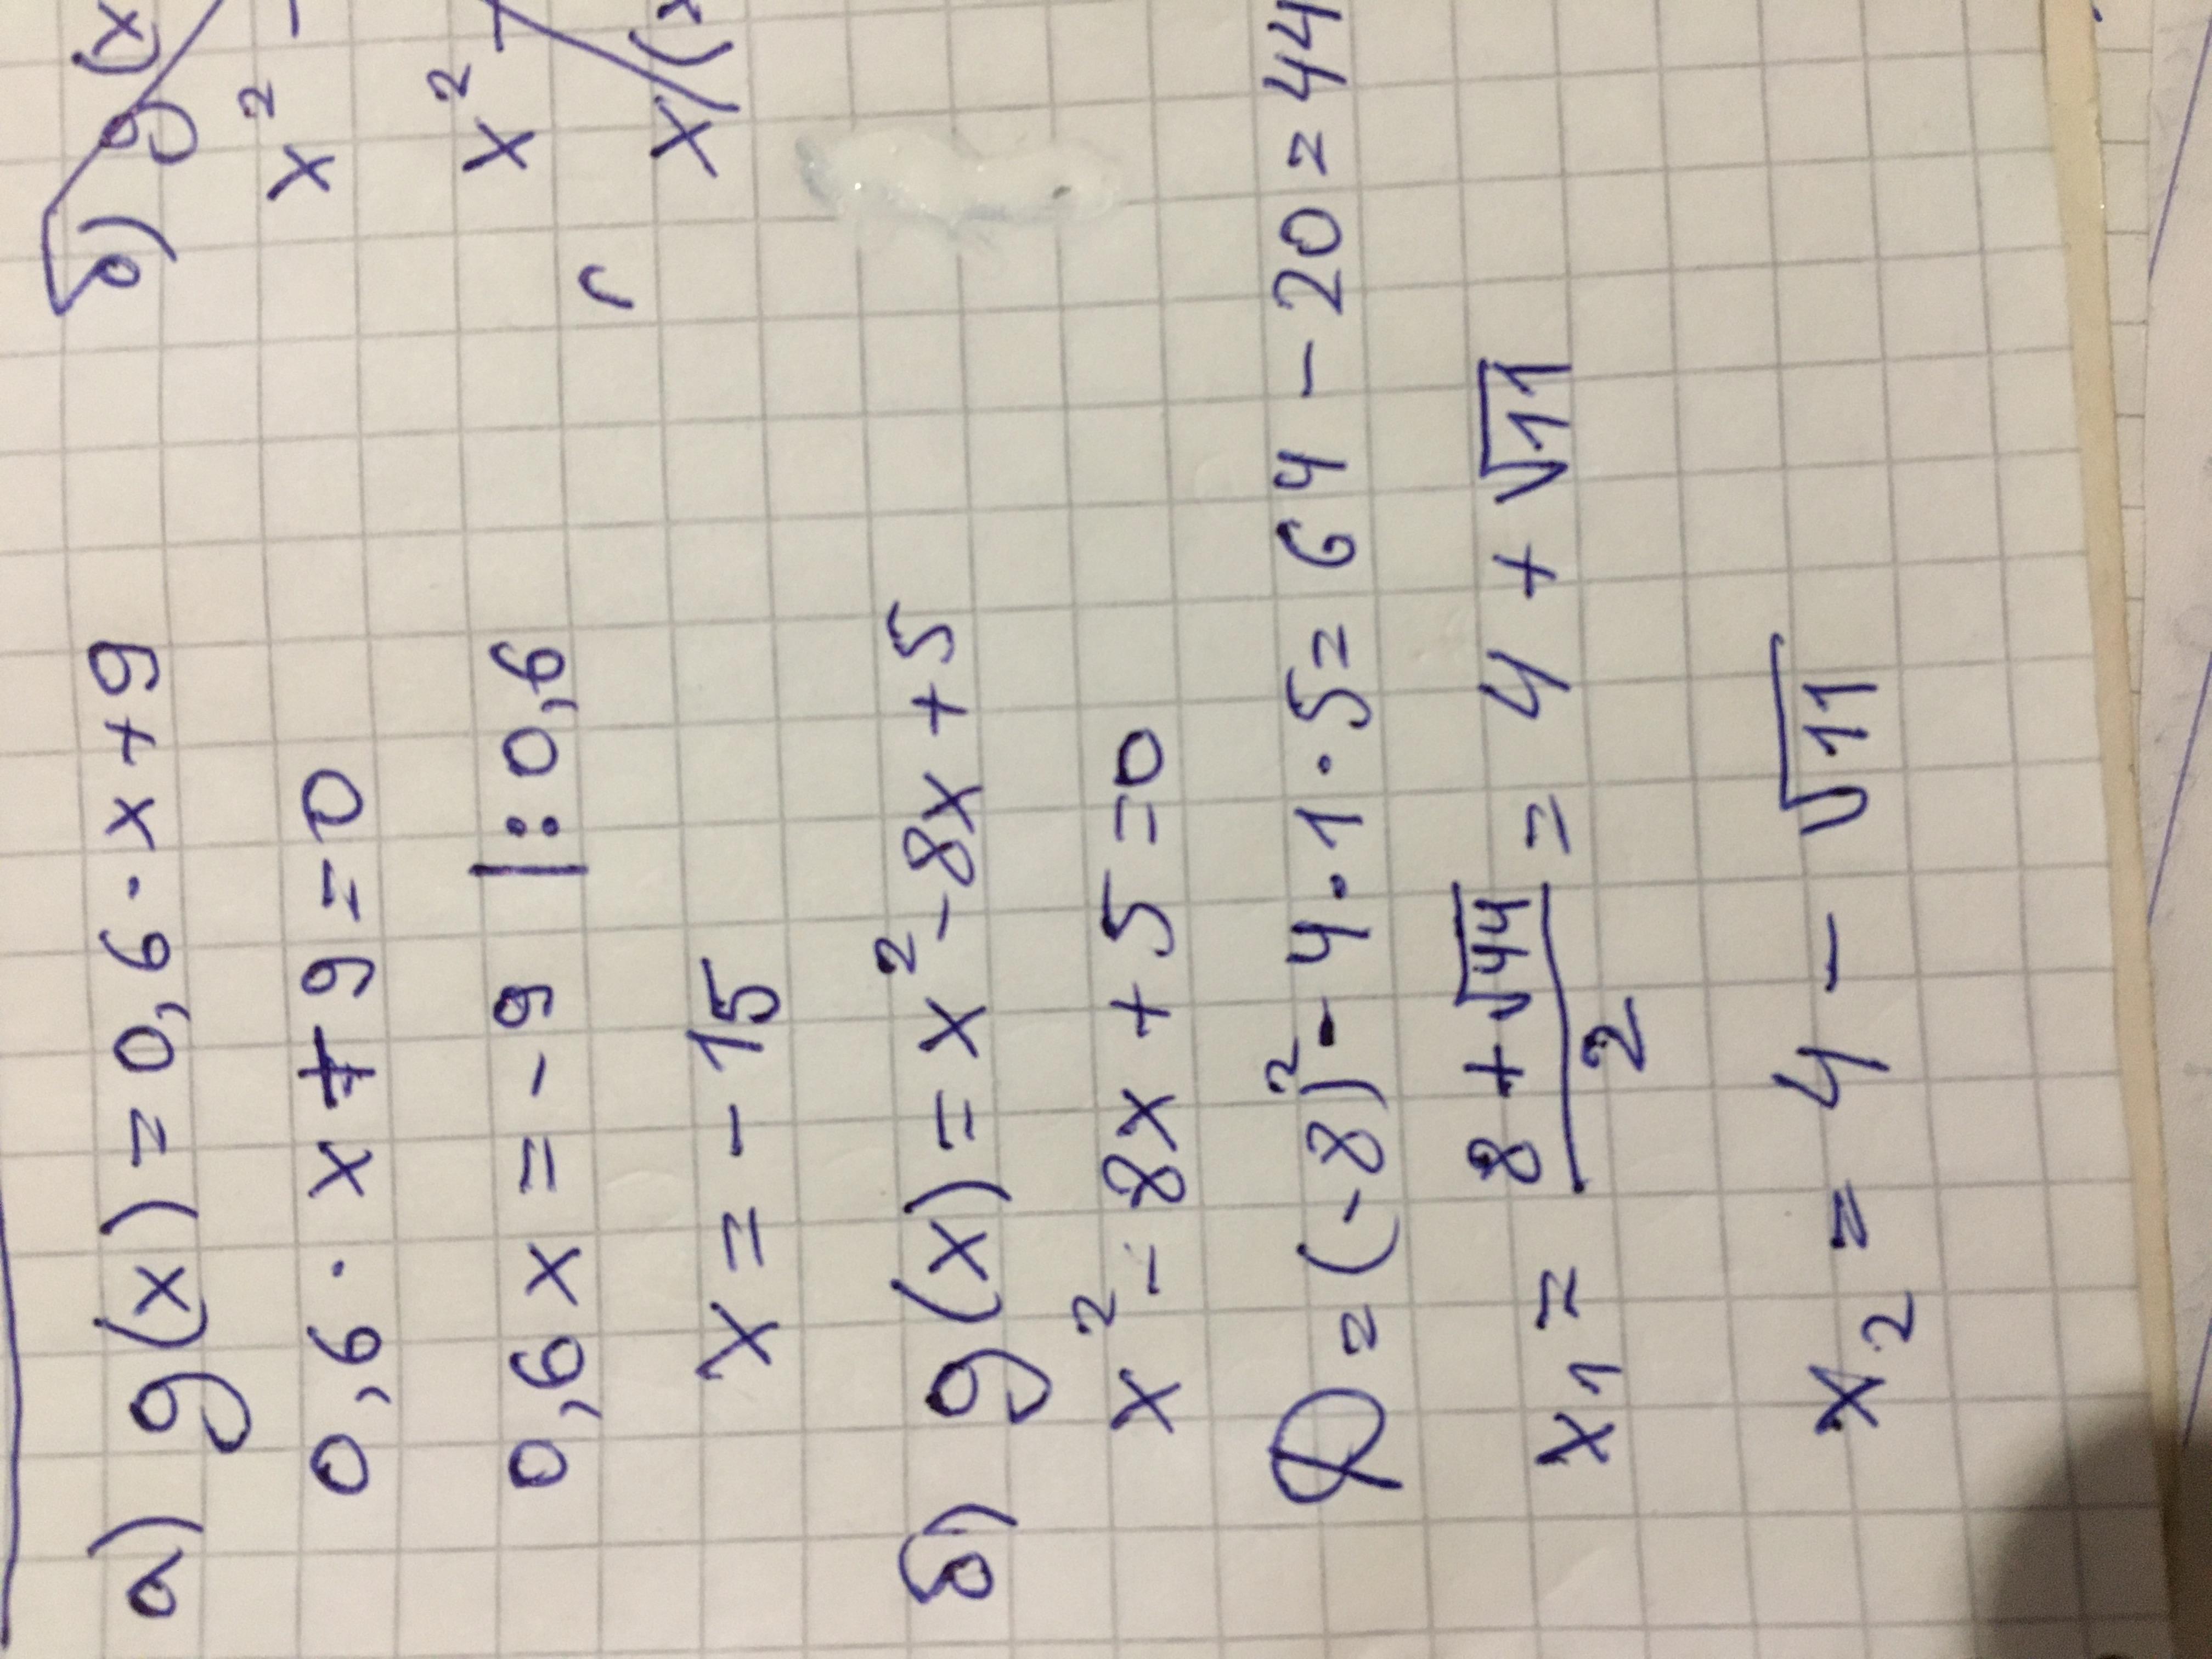 а) g(x) = 0,6 · x + 9
0,6 · x + 9 = 0
0,6 x = - 9 | : 0,6
x = - 15
б) g(x) = x² - 8x + 5
x² - 8x + 5 = 0
D = (-8)² - 4 · 1 · 5 = 64 - 20 = 44
x₁ = (8 + √44)/2 = 4 + √11
x₂ = 4 - √11
б) g(x
x² -
x²
x(x